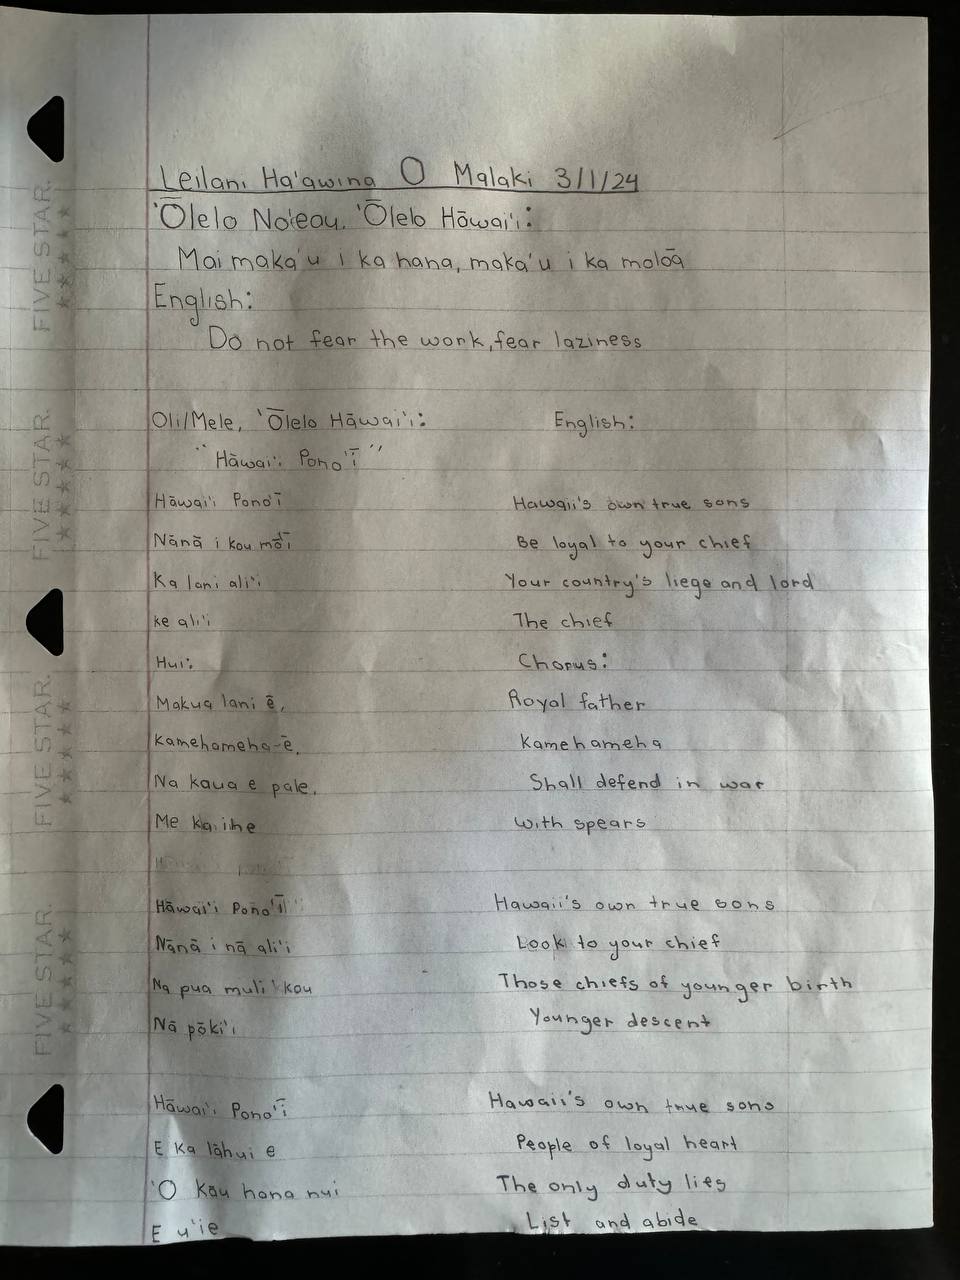 Leilani Ha'awina O Malaki 3/1/24
'Ōlelo No'eau, 'Ōlelo Hāwai'i:
Mai maka'u i ka hana, maka'u i ka moloā
English:
Do not fear the work, fear laziness
Oli/Mele, 'Ōlelo Hāwai'i: English:
"Hāwai'i Pono'ī"
Hāwai'i Pono'ī Hawaii's own true sons
Nānā i kou mō'ī Be loyal to your chief
Ka lani ali'i Your country's liege and lord
ke ali'i The chief
Hui: Chorus:
Makua lani ē, Royal father
Kamehameha ē, Kamehameha
Na kaua e pale, Shall defend in war
Me ka ihe With spears
Hāwai'i Pono'ī Hawaii's own true sons
Nānā i nā ali'i Look to your chief
Na pua muli kou Those chiefs of younger birth
Nā pōki'i Younger descent
Hāwai'i Pono'ī Hawaii's own true sons
E Ka lāhui e People of loyal heart
'O Kāu hana nui The only duty lies
E u'ie List and abide
FIVE STAR.
FIVE STAR.
FIVE STAR.
FIVE STAR.